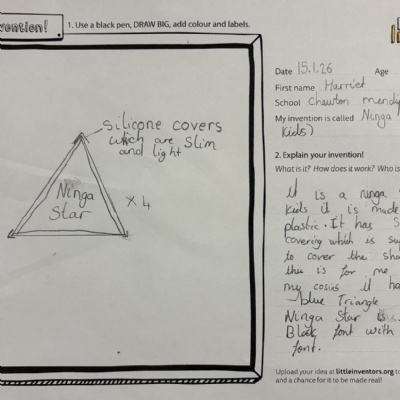 vention!
1. Use a black pen, DRAW BIG, add colour and labels.
silicone covers
which are slim
and light
Ninga
Star
x 4
Date 15.1.26 Age
First name Harriet
School Chewton mendi
My invention is called Ninga
Kids)
2. Explain your invention!
What is it? How does it work? Who is
It is a ninga
kids it is made
plastic. It has S
covering which is su
to cover the sha
this is for me
my cosies it ha
blue Triangle
Ninga Star
Black font with
font.
Upload your idea at littleinventors.org to
and a chance for it to be made real!